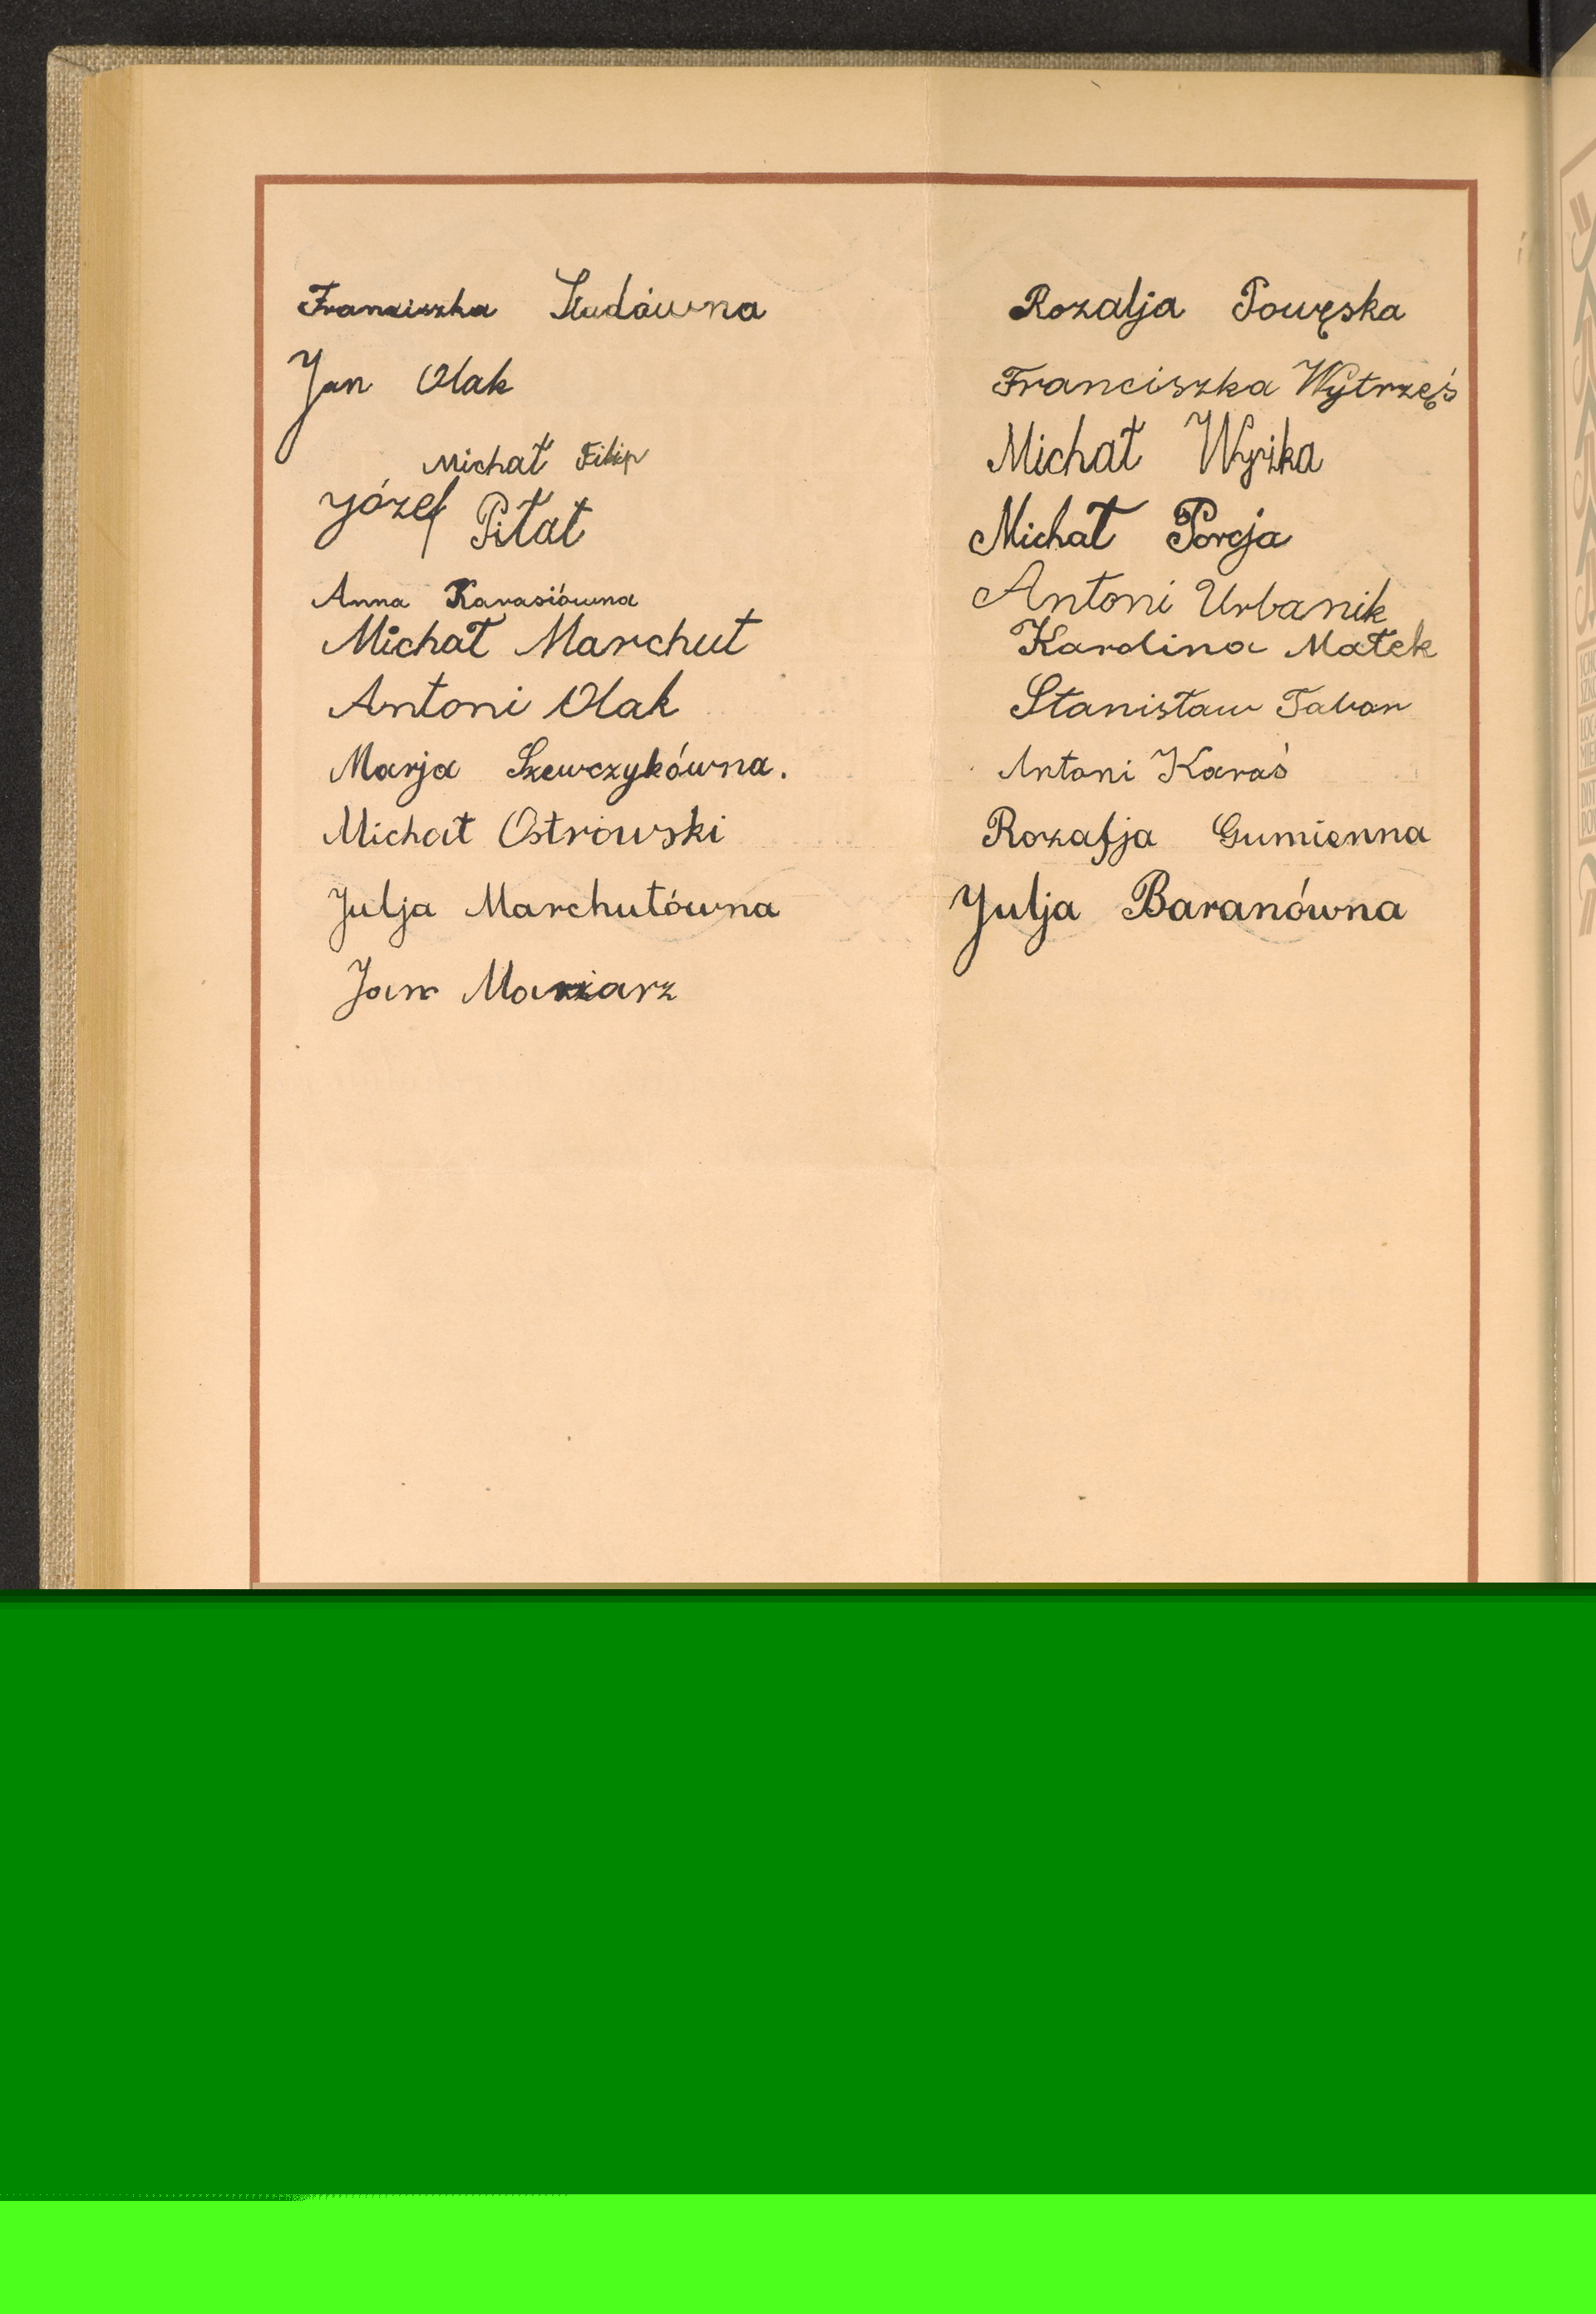 Franciszka
Jan Olak
Michał Filip
Józef Pitat
Anna Karasiówna
Michał Marchut
Antoni Olak
Marja Szewczykówna.
Michał Ostrowski
Julja Marchutówna
Jan
Rozalja Powęska
Franciszka Wytrzęś
Michał
Michał Porcja
Antoni Urbanik
Karolina Małek
Stanisław Tabor
Antoni Karaś
Rozalja Gumienna
Julja Baranówna